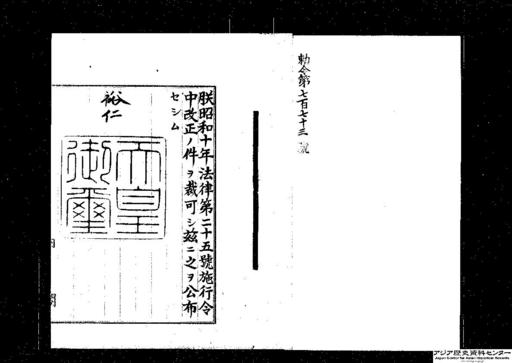 勅令第七百七十三號
朕昭和十年法律第二十五號施行令
中改正ノ件ヲ裁可シ茲ニ之ヲ公布
セシム
裕仁
天皇
御璽
内 閣
アジア歴史資料センター
Japan Center for Asian Historical Records